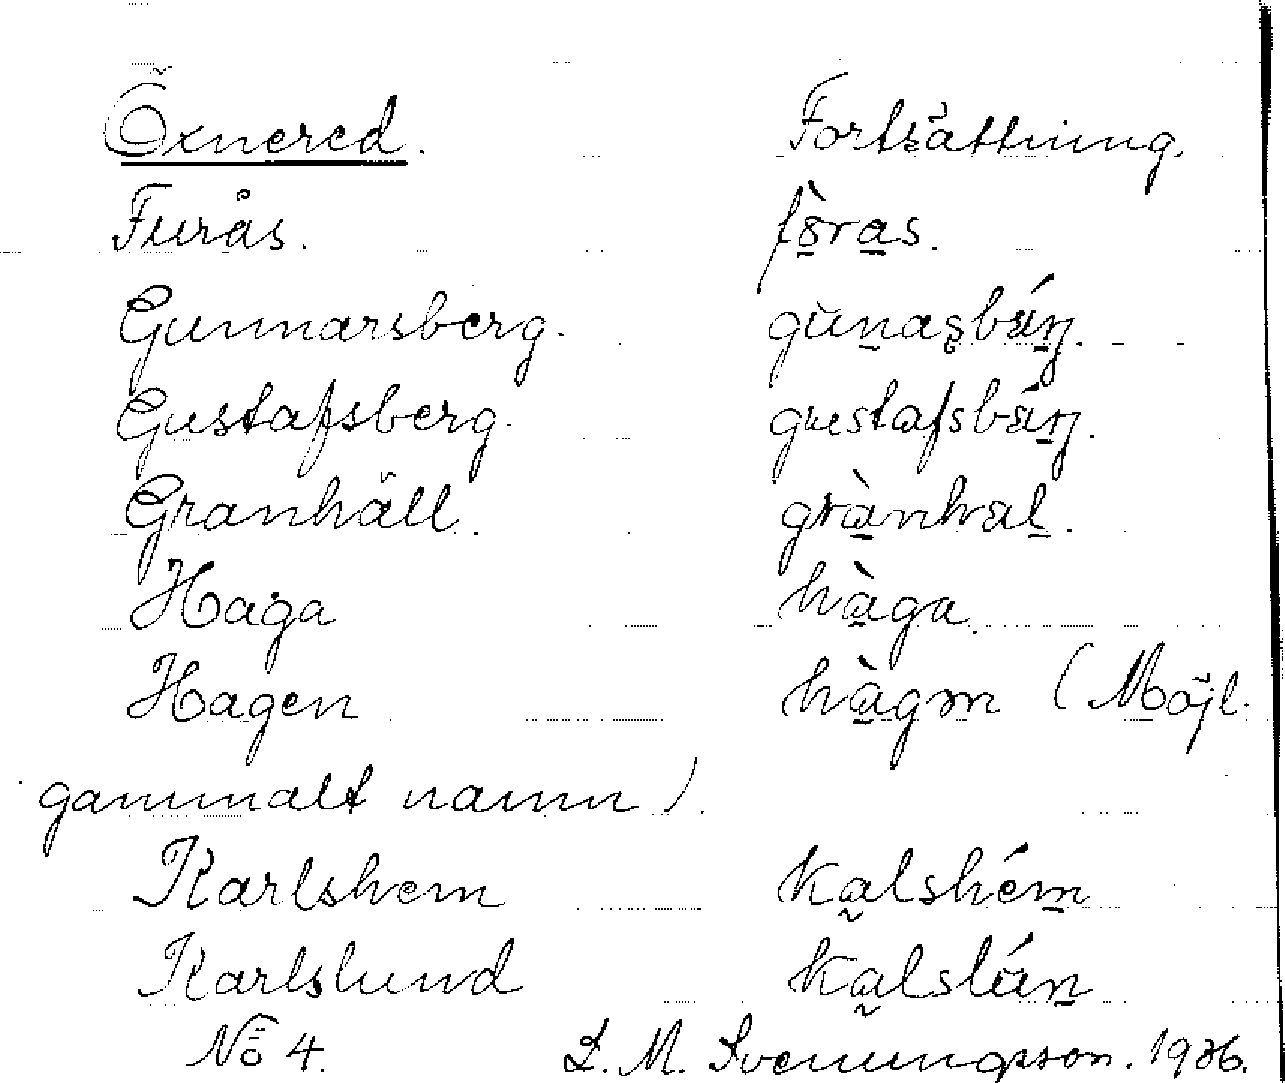 Öxnered. Fortsättning.
Furås. fòras.
Gunnarsberg. gùnasbárj.
Gustafsberg. gustafsbárj.
Granhäll. grànhäl.
Haga hàga.
Hagen hàgm (Möjl.
gammalt namn).
Karlshem kalshém
Karlslund kalslún
No 4. L. M. Svenungsson. 1936.